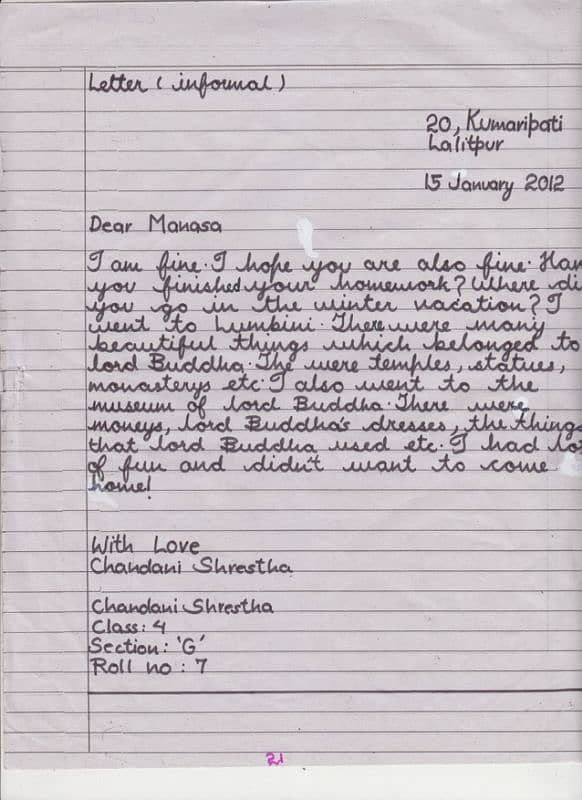 Letter ( informal )
20, Kumaripati
Lalitpur
15 January 2012
Dear Manasa
I am fine. I hope you are also fine. Hav
you finished your homework? Where di
you go in the winter vacation? I
went to Lumbini. There were many
beautiful things which belonged to
lord Buddha. The were temples, statues,
monasterys etc. I also went to the
museum of lord Buddha. There were
moneys, lord Buddha's dresses, the things
that lord Buddha used etc. I had lot
of fun and didn't want to come
home!
With Love
Chandani Shrestha
Chandani Shrestha
Class: 4
Section: 'G'
Roll no : 7
21